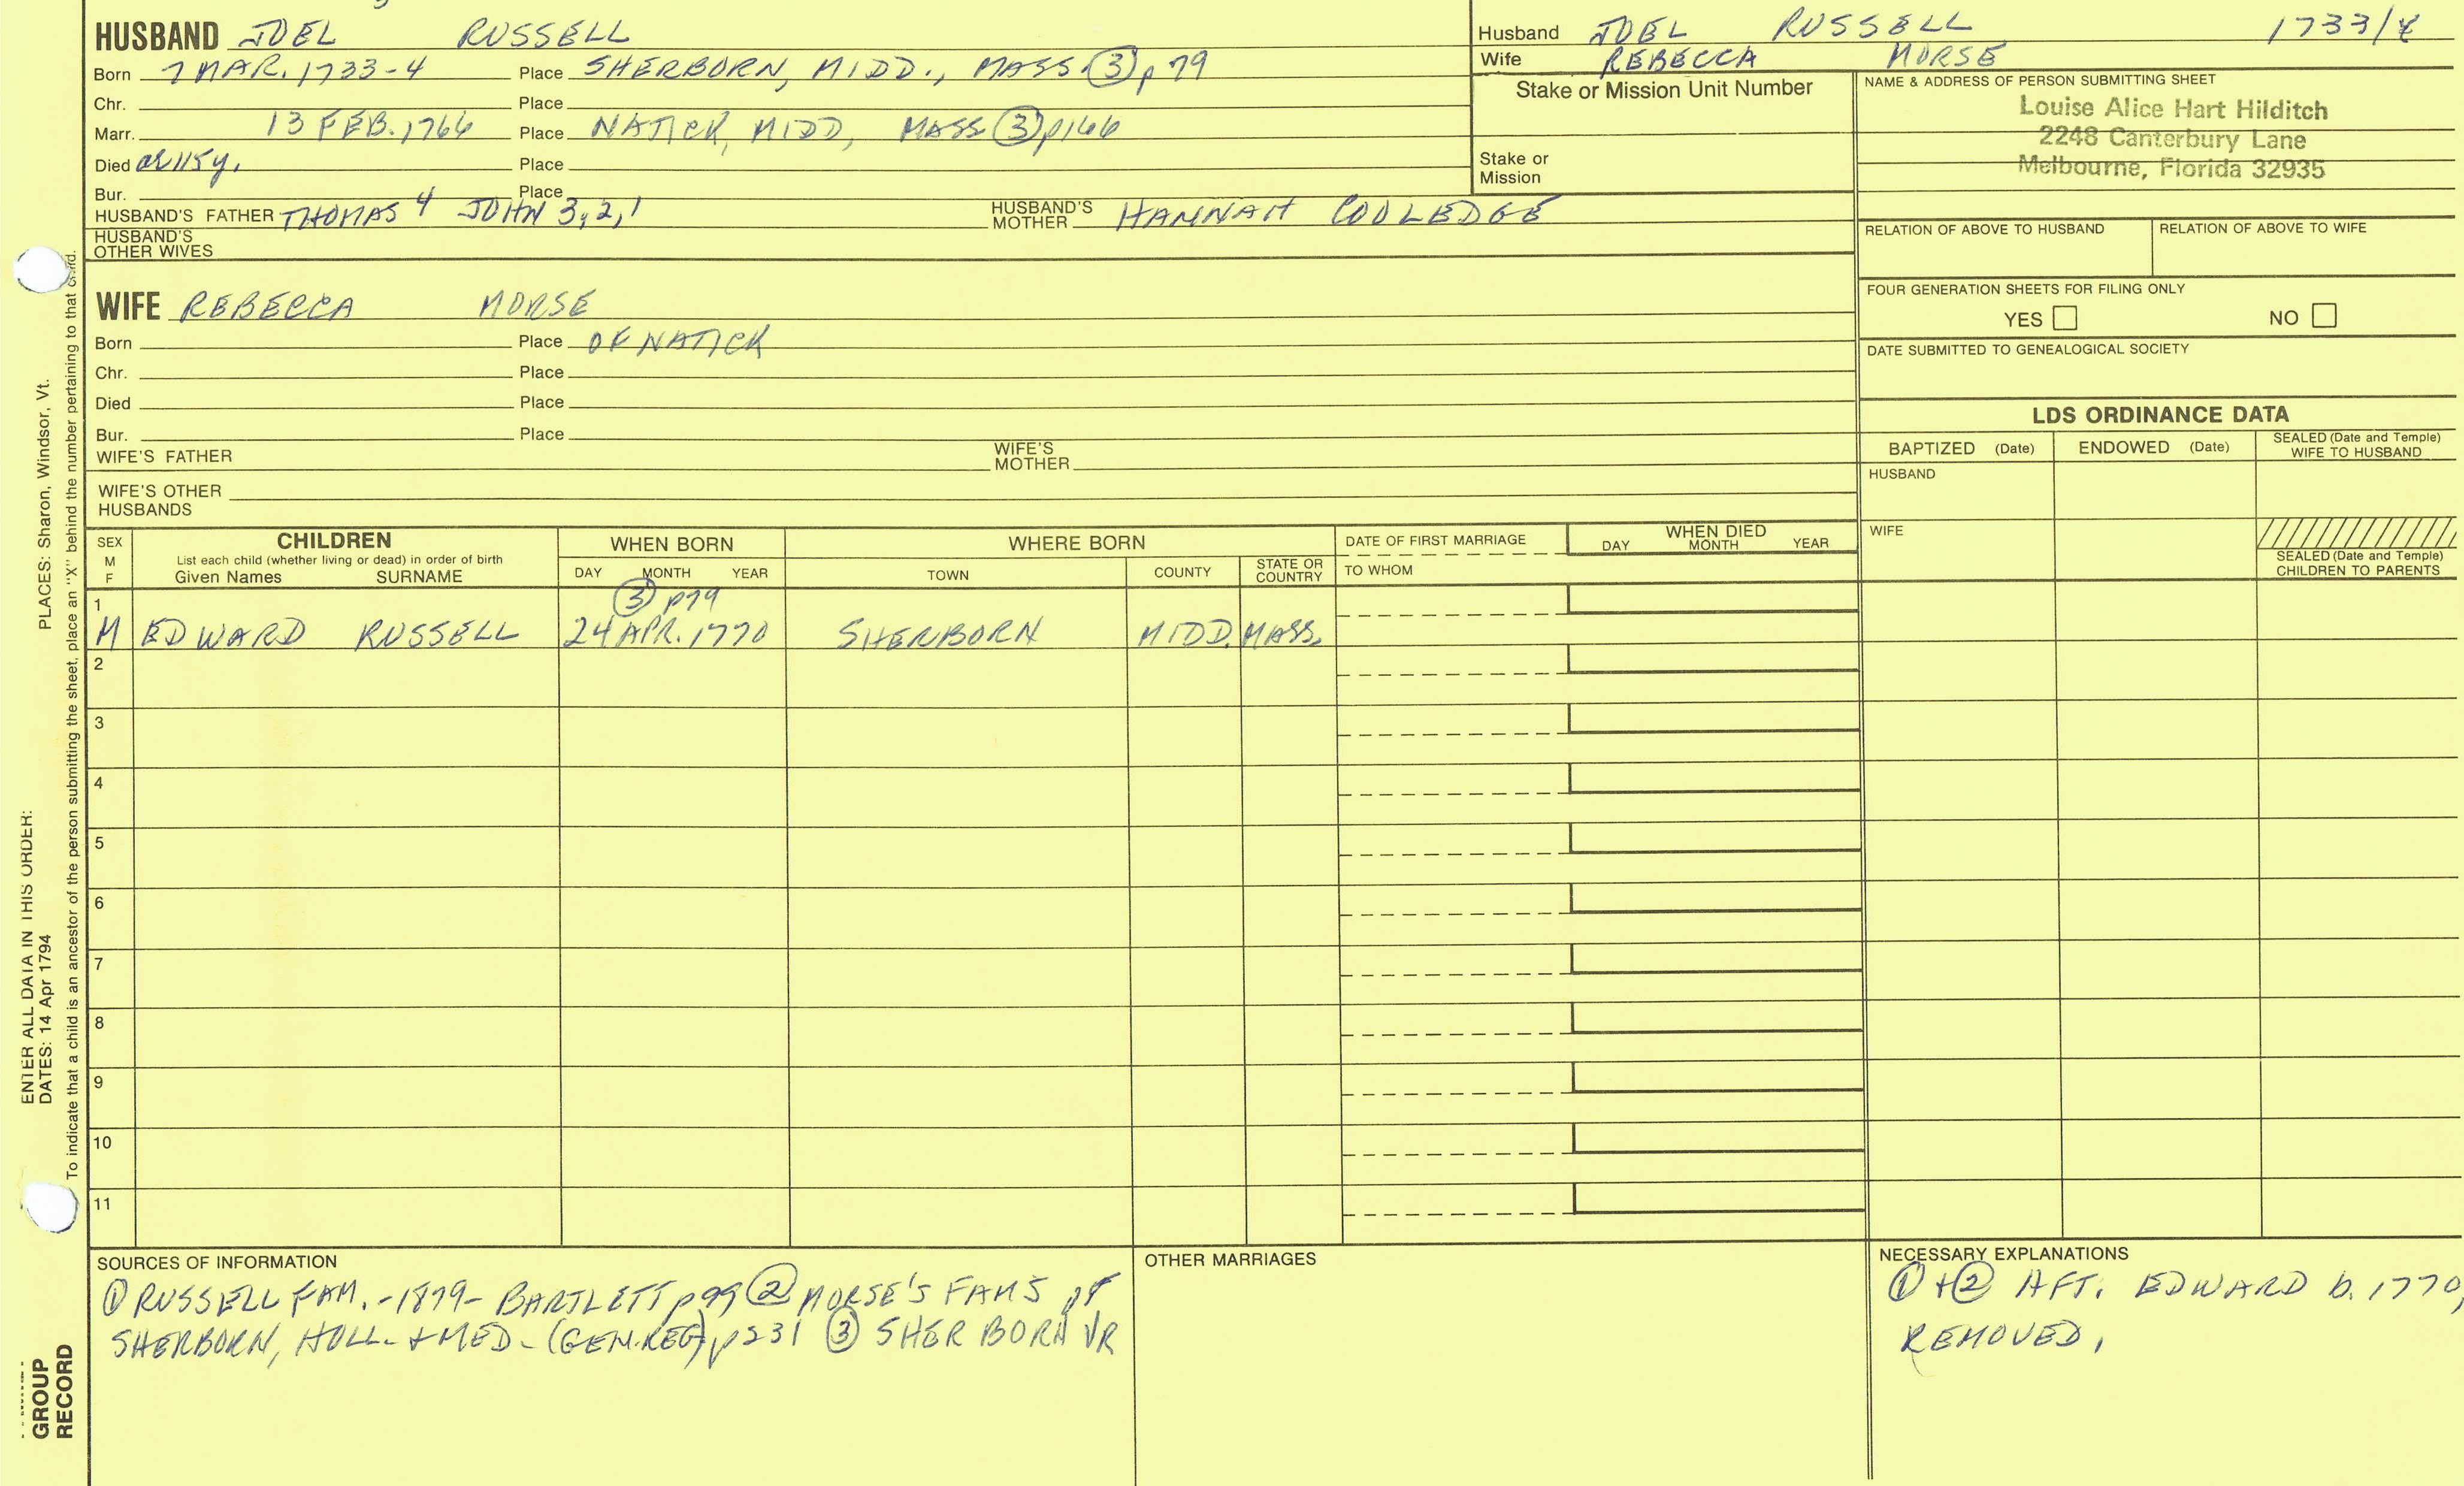 HUSBAND JOEL RUSSELL
Born 7 MAR. 1733-4 Place SHERBORN, MIDD., MASS. (3) p 79
Chr. Place
Marr. 13 FEB. 1766 Place NATICK, MIDD, MASS (3) p166
Died Place
Bur. Place
HUSBAND'S FATHER THOMAS 4 JOHN 3, 2, 1 HUSBAND'S MOTHER HANNAH COOLEDGE
HUSBAND'S OTHER WIVES
WIFE REBECCA MORSE
Born Place OF NATICK
Chr. Place
Died Place
Bur. Place
WIFE'S FATHER WIFE'S MOTHER
WIFE'S OTHER HUSBANDS
Husband JOEL RUSSELL 1733/4
Wife REBECCA MORSE
Stake or Mission Unit Number
Stake or Mission
NAME & ADDRESS OF PERSON SUBMITTING SHEET
Louise Alice Hart Hilditch
2248 Canterbury Lane
Melbourne, Florida 32935
RELATION OF ABOVE TO HUSBAND RELATION OF ABOVE TO WIFE
FOUR GENERATION SHEETS FOR FILING ONLY
YES NO
DATE SUBMITTED TO GENEALOGICAL SOCIETY
LDS ORDINANCE DATA
BAPTIZED (Date) ENDOWED (Date) SEALED (Date and Temple) WIFE TO HUSBAND
HUSBAND
WIFE
SEALED (Date and Temple) CHILDREN TO PARENTS
SEX M F
CHILDREN
List each child (whether living or dead) in order of birth
Given Names SURNAME
WHEN BORN
DAY MONTH YEAR
WHERE BORN
TOWN COUNTY STATE OR COUNTRY
DATE OF FIRST MARRIAGE
TO WHOM
WHEN DIED
DAY MONTH YEAR
1 (3) p79
M EDWARD RUSSELL 24 APR. 1770 SHERBORN MIDD. MASS.
2
3
4
5
6
7
8
9
10
11
SOURCES OF INFORMATION
(1) RUSSELL FAM. -1879- BARTLETT p 99 (2) MORSE'S FAMS of
SHERBORN, HOLL. + MED - (GEN. REG) p 231 (3) SHERBORN VR
OTHER MARRIAGES
NECESSARY EXPLANATIONS
(1) + (2) AFT. EDWARD b. 1770,
REMOVED,
ENTER ALL DATA IN THIS ORDER:
PLACES: Sharon, Windsor, Vt.
DATES: 14 Apr 1794
To indicate that a child is an ancestor of the person submitting the sheet, place an "X" behind the number pertaining to that child.
GROUP
RECORD